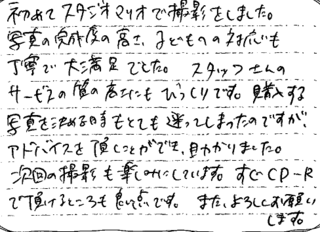 初めてスタジオマリオで撮影をしました。
写真の完成度の高さ、子どもへの対応も
丁寧で大満足でした。スタッフさんの
サービスの質の高さにもびっくりです。購入する
写真を決める時もとても迷ってしまったのですが、
アドバイスを頂くことができ、助かりました。
次回の撮影も楽しみにしています。すぐCD-R
で頂けるところも良い点です。また、よろしくお願い
します。